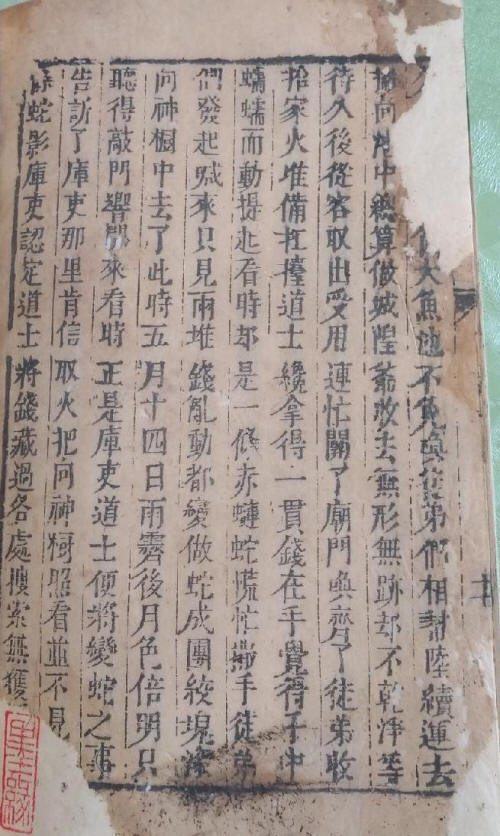 大魚池不免與徒弟們相幫陸續運去
神向冠中總算做城隍爺收去無形無跡却不乾淨等
待久後從容取出受用連忙關了廟門喚齊了徒弟收
拾家火堆備扛擡道士纔拿得一貫錢在手覺得手中
蠕蠕而動提起看時却是一條赤蠊蛇慌忙撒手徒弟
們發起喊來只見兩堆錢亂動都變做蛇成團絞塊
向神橱中去了此時五月十四日雨霽後月色倍明只
聽得敲門響開來看時正是庫吏道士便將變蛇之事
告訴了庫吏那里肯信取火把向神橱照看並不見
蛇影庫吏認定道士將錢藏過各處搜索無獲